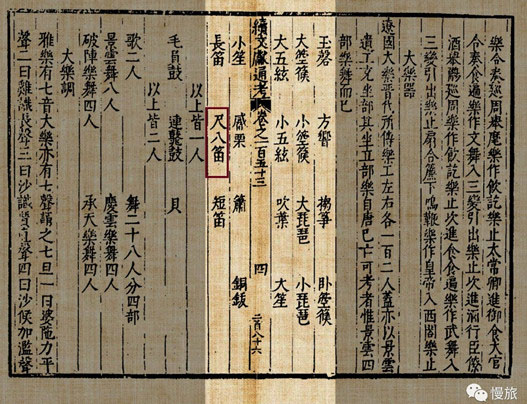 樂令奏廵周舉麾樂作飲訖樂止太常卿進御食大官
令奏食遍樂作文舞入三變引出樂止次進酒行臣僚
酒舉觴廵周樂作飲訖樂止次進食食遍樂作武舞入
三變引出樂止扇合簾下鳴鞭樂作皇帝入西閤樂止
大樂器
遼國大樂晉代所傳樂工左右各一百二人蓋亦以景雲
遺工充坐部其坐立部樂自唐已亡可考者惟景雲四
部樂舞而已
玉磬 方響 搊箏 臥箜篌
大箜篌 小箜篌 大琵琶 小琵琶
大五絃 小五絃 吹葉 大笙
續文獻通考 卷之一百五十三 四 二百八十六
小笙 觱栗 簫 銅鈸
長笛 尺八笛 短笛
以上皆一人
毛員鼓 連鼗鼓 貝
以上皆二人
歌二人 舞二十八人分四部
景雲舞八人 慶雲樂舞四人
破陣樂舞四人 承天樂舞四人
大樂調
雅樂有七音大樂亦有七聲謂之七旦一曰婆陁力平
聲二曰雞識長聲三曰沙識質直聲四曰沙侯加濫聲
慢旅